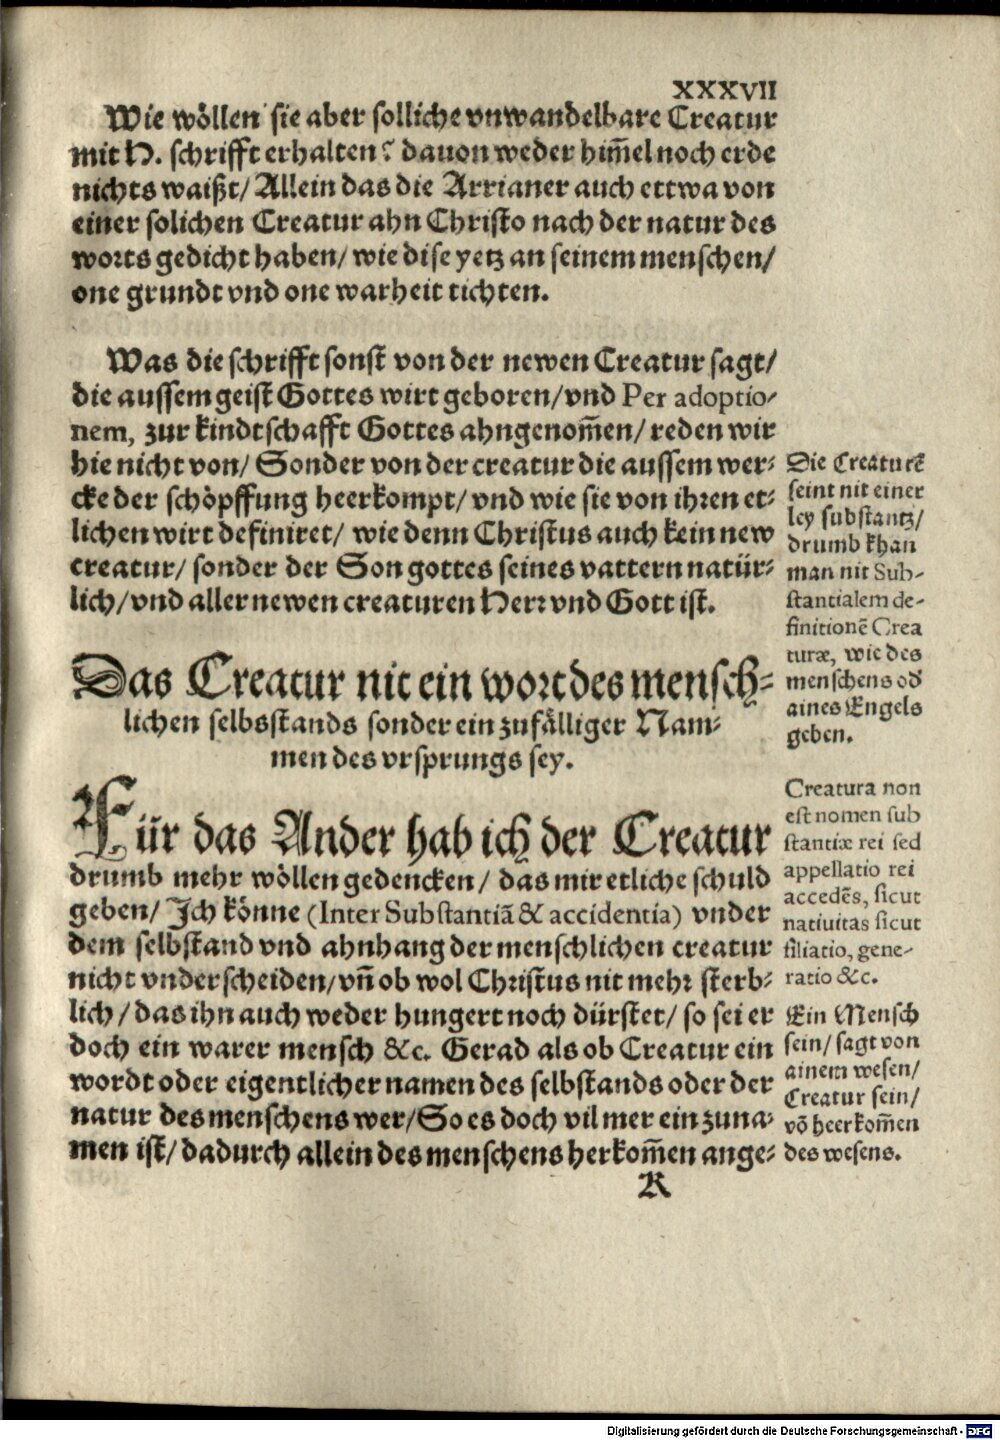 XXXVII
Wie wöllen sie aber solliche vnwandelbare Creatur
mit H. schrifft erhalten? dauon weder him̃el noch erde
nichts waißt/ Allein das die Arrianer auch ettwa von
einer solichen Creatur ahn Christo nach der natur des
worts gedicht haben/ wie dise yetz an seinem menschen/
one grundt vnd one warheit tichten.
Was die schrifft sonst von der newen Creatur sagt/
die aussem geist Gottes wirt geboren/ vnd Per adoptio-
nem, zur kindtschafft Gottes ahngenom̃en/ reden wir
hie nicht von/ Sonder von der creatur die aussem wer-
cke der schöpffung heerkompt/ vnd wie sie von ihren et-
lichen wirt definiret/ wie denn Christus auch kein new
creatur/ sonder der Son gottes seines vattern natür-
lich/ vnd aller newen creaturen Herr vnd Gott ist.
Das Creatur nit ein wort des mensch-
lichen selbsstands sonder ein zufälliger Nam-
men des vrsprungs sey.
Für das Ander hab ich der Creatur
drumb mehr wöllen gedencken/ das mir etliche schuld
geben/ Ich könne (Inter Substantiã & accidentia) vnder
dem selbstand vnd ahnhang der menschlichen creatur
nicht vnderscheiden/ vñ ob wol Christus nit mehr sterb-
lich/ das ihn auch weder hungert noch dürstet/ so sei er
doch ein warer mensch &c. Gerad als ob Creatur ein
wordt oder eigentlicher namen des selbstands oder der
natur des menschens wer/ So es doch vil mer ein zuna-
men ist/ dadurch allein des menschens herkom̃en ange-
K
Die Creaturẽ
seint nit einer
ley substantz/
drumb khan
man nit Sub-
stantialem de-
finitionẽ Crea
turæ, wie des
menschens od
aines Engels
geben.
Creatura non
est nomen sub
stantiæ rei sed
appellatio rei
accedẽs, sicut
nativitas sicut
filiatio, gene-
ratio &c.
Ein Mensch
sein/ sagt von
ainem wesen/
Creatur sein/
võ heerkom̃en
des wesens.
Digitalisierung gefördert durch die Deutsche Forschungsgemeinschaft - DFG